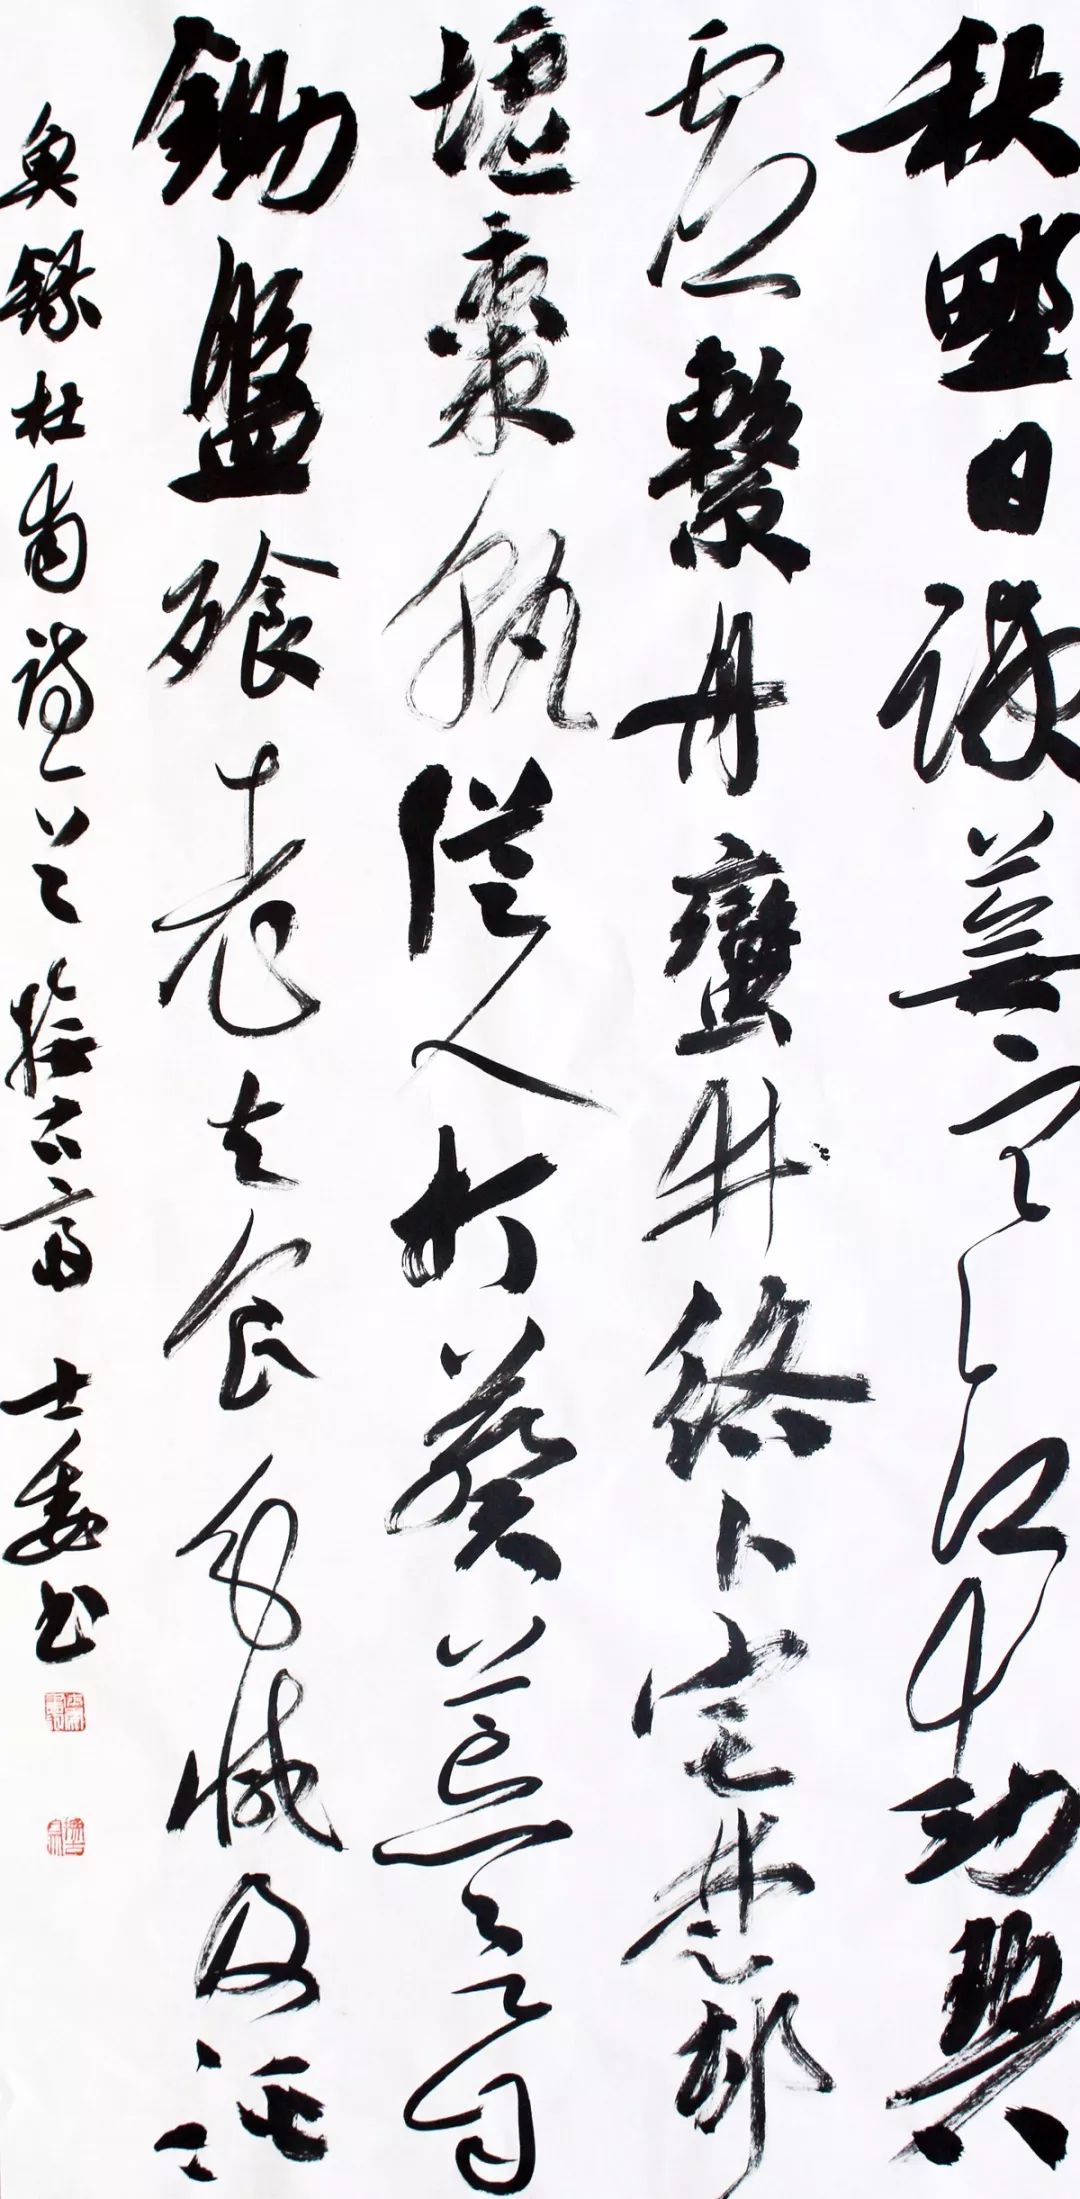 秋野日疎蕪寒江動碧
虛繫舟蠻井絡卜宅楚村
墟棗熟從人打葵荒欲自
鋤盤飧老夫食分減及溪
魚錄杜甫詩一首古齋士委书